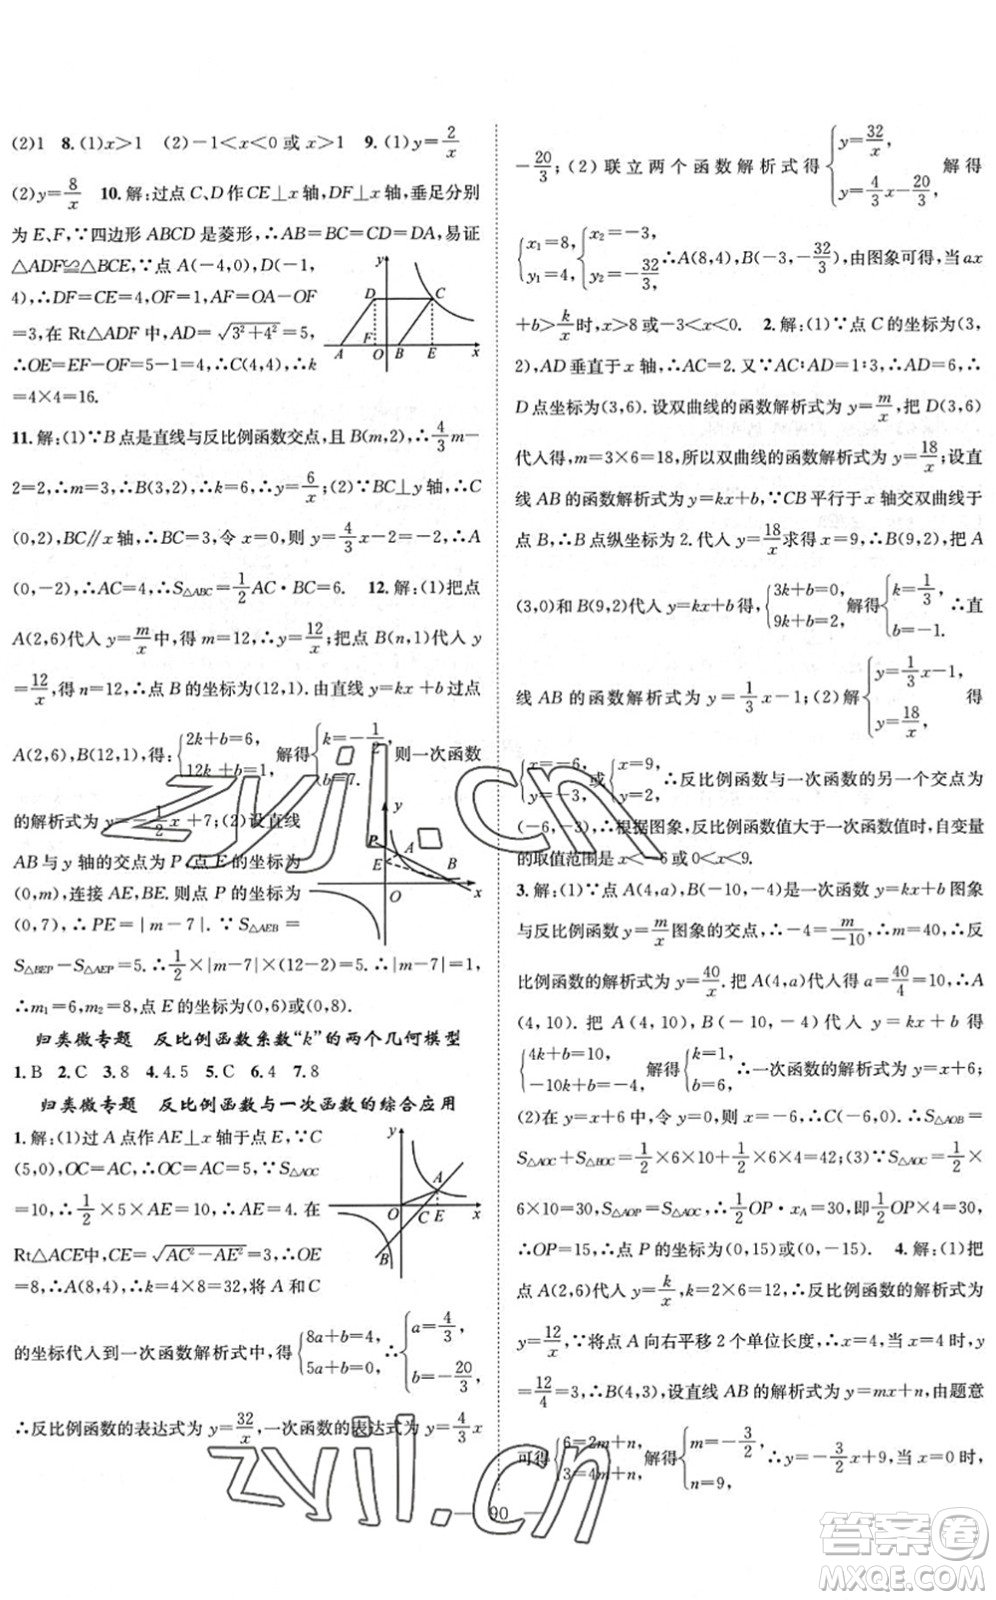 (2)1 8.(1)x>1 (2)-1<x<0 或 x>1 9.(1)y=2/x
(2)y=8/x 10.解:过点 C、D 作 CE⊥x 轴,DF⊥x 轴,垂足分别
为 E、F,∵四边形 ABCD 是菱形,∴AB=BC=CD=DA,易证
△ADF≌△BCE,∵点 A(-4,0),D(-1,
4),∴DF=CE=4,OF=1,AF=OA-OF
=3,在 Rt△ADF 中,AD=√(3²+4²)=5,
∴OE=EF-OF=5-1=4,∴C(4,4),∴k
=4×4=16.
y D C F A O B E x
11.解:(1)∵B 点是直线与反比例函数交点,且 B(m,2),∴4/3m-
2=2,∴m=3,∴B(3,2),∴k=6,∴y=6/x;(2)∵BC⊥y 轴,∴C
(0,2),BC∥x 轴,∴BC=3,令 x=0,则 y=4/3x-2=-2,∴A
(0,-2),∴AC=4,∴S△ABC=1/2AC·BC=6. 12.解:(1)把点
A(2,6)代入 y=m/x中,得 m=12,∴y=12/x;把点 B(n,1)代入 y
=12/x,得 n=12,∴点 B 的坐标为(12,1).由直线 y=kx+b 过点
A(2,6),B(12,1),得:{2k+b=6, 12k+b=1, 解得{k=-1/2, b=7. 则一次函数
的解析式为 y=-1/2x+7;(2)设直线
AB 与 y 轴的交点为 P,点 E 的坐标为
(0,m),连接 AE,BE.则点 P 的坐标为
(0,7),∴PE=|m-7|.∵S△AEB=
S△BEP-S△AEP=5.∴1/2×|m-7|×(12-2)=5.∴|m-7|=1.
∴m₁=6,m₂=8,点 E 的坐标为(0,6)或(0,8).
y P A E B O x
归类微专题 反比例函数系数“k”的两个几何模型
1.B 2.C 3.8 4.4.5 5.C 6.4 7.8
归类微专题 反比例函数与一次函数的综合应用
1.解:(1)过 A 点作 AE⊥x 轴于点 E,∵C
(5,0),OC=AC,∴OC=AC=5,∵S△AOC
=10,∴1/2×5×AE=10,∴AE=4.在
Rt△ACE中,CE=√(AC²-AE²)=3,∴OE
=8,∴A(8,4),∴k=4×8=32,将 A 和 C
y A O C E x B
的坐标代入到一次函数解析式中,得{8a+b=4, 5a+b=0, ∴{a=4/3, b=-20/3,
∴反比例函数的表达式为 y=32/x,一次函数的表达式为 y=4/3x
-20/3;(2)联立两个函数解析式得{y=32/x, y=4/3x-20/3, 解得
{x₁=8, y₁=4, {x₂=-3, y₂=-32/3, ∴A(8,4),B(-3,-32/3),由图象可得,当 ax
+b>k/x时,x>8 或-3<x<0. 2.解:(1)∵点 C 的坐标为(3,
2),AD 垂直于 x 轴,∴AC=2.又∵AC:AD=1:3,∴AD=6,∴
D 点坐标为(3,6).设双曲线的函数解析式为 y=m/x,把 D(3,6)
代入得,m=3×6=18,所以双曲线的函数解析式为 y=18/x;设直
线 AB 的函数解析式为 y=kx+b,∵CB 平行于 x 轴交双曲线于
点 B,∴B 点纵坐标为 2.代入 y=18/x求得 x=9,∴B(9,2),把 A
(3,0)和 B(9,2)代入 y=kx+b 得,{3k+b=0, 9k+b=2, 解得{k=1/3, b=-1. ∴直
线 AB 的函数解析式为 y=1/3x-1;(2)解{y=1/3x-1, y=18/x, 得
{x=-6, y=-3, 或{x=9, y=2, ∴反比例函数与一次函数的另一个交点为
(-6,-3),∴根据图象,反比例函数值大于一次函数值时,自变量
的取值范围是 x<-6 或0<x<9.
3.解:(1)∵点 A(4,a),B(-10,-4)是一次函数 y=kx+b 图象
与反比例函数 y=m/x图象的交点,∴-4=m/-10,∴m=40,∴反
比例函数的解析式为 y=40/x.把 A(4,a)代入得 a=40/4=10,∴A
(4,10).把 A(4,10),B(-10,-4)代入 y=kx+b 得
{4k+b=10, -10k+b=-4, 解得{k=1, b=6, ∴一次函数的解析式为 y=x+6;
(2)在 y=x+6 中,令 y=0,则 x=-6,∴C(-6,0),∴S△AOB=
S△AOC+S△BOC=1/2×6×10+1/2×6×4=42;(3)∵S△AOC=1/2×
6×10=30,S△AOP=S△AOC=30,∴1/2OP·xA=30,即1/2OP×4=30,
∴OP=15,∴点 P 的坐标为(0,15)或(0,-15). 4.解:(1)把
点 A(2,6)代入 y=k/x,k=2×6=12,∴反比例函数的解析式为
y=12/x,∵将点 A 向右平移 2 个单位长度,∴x=4,当 x=4 时,y=
12/4=3,∴B(4,3),设直线 AB 的解析式为 y=mx+n,由题意
可得{6=2m+n, 3=4m+n, 解得{m=-3/2, n=9, ∴y=-3/2x+9,当 x=0
— 90 —
zyjl.cn
zyjl.cn
答案卷
MXQE.COM